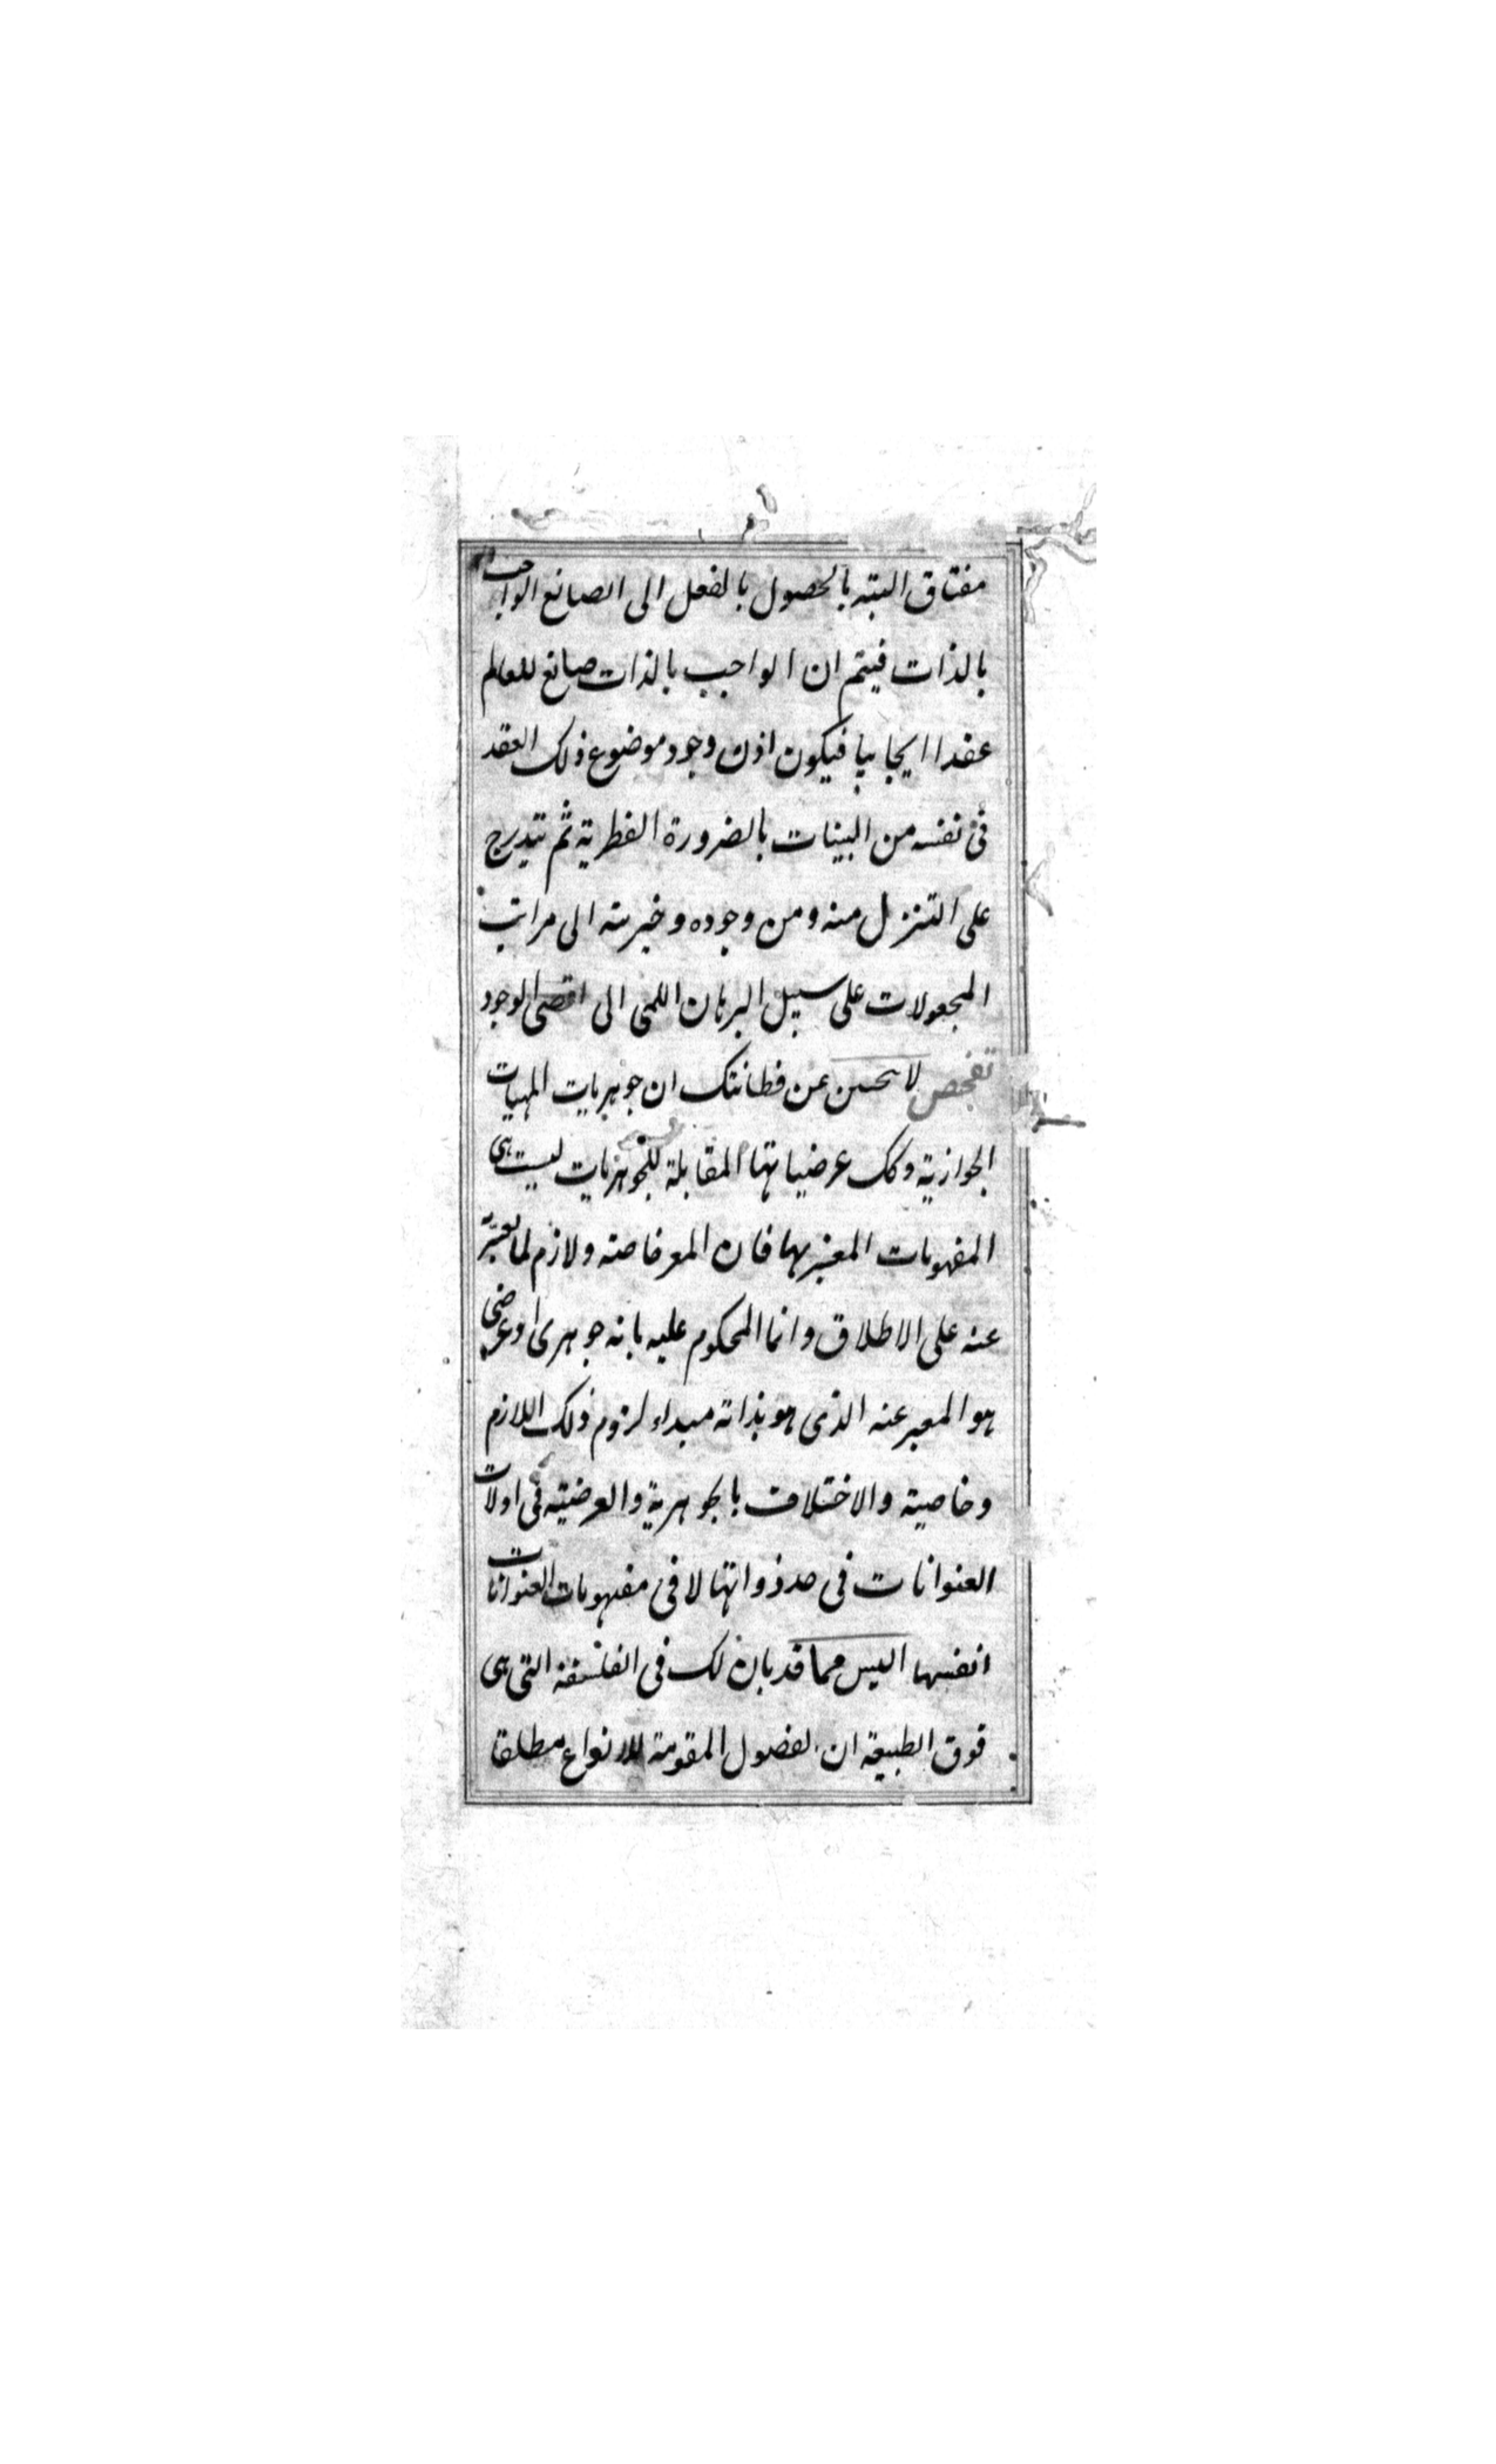 مفتاق البته بالحصول بالفعل الى الصانع الواجب
بالذات فيتم ان الواجب بالذات صانع للعالم
عقدا ايجابيا فيكون اذن وجود موضوع ذلك العقد
فى نفسه من البينات بالضرورة الفطرية ثم تتدرج
على التنزل منه ومن وجوده وخيريته الى مراتب
المجعولات على سبيل البرهان اللمى الى اقصى الوجود
تفحص لا تحسبن عن فطانتك ان جوهريات المهيات
الجوازية وكك عرضياتها المقابلة للجوهريات ليست هى
المفهومات المعبر بها فان المعبر خاصته ولازم لما يعبر
عنه على الاطلاق وانما المحكوم عليه بانه جوهرى او عرضى
هو المعبر عنه الذى هو بذاته مبداء لزوم ذلك اللازم
وخاصيته والاختلاف بالجوهرية والعرضيته فى اولات
العنوانات فى حد ذواتها لا فى مفهومات العنوانات
انفسها اليس مما قد بان لك فى الفلسفة التى هى
فوق الطبيعة ان لفصول المقومة للانواع مطلقا